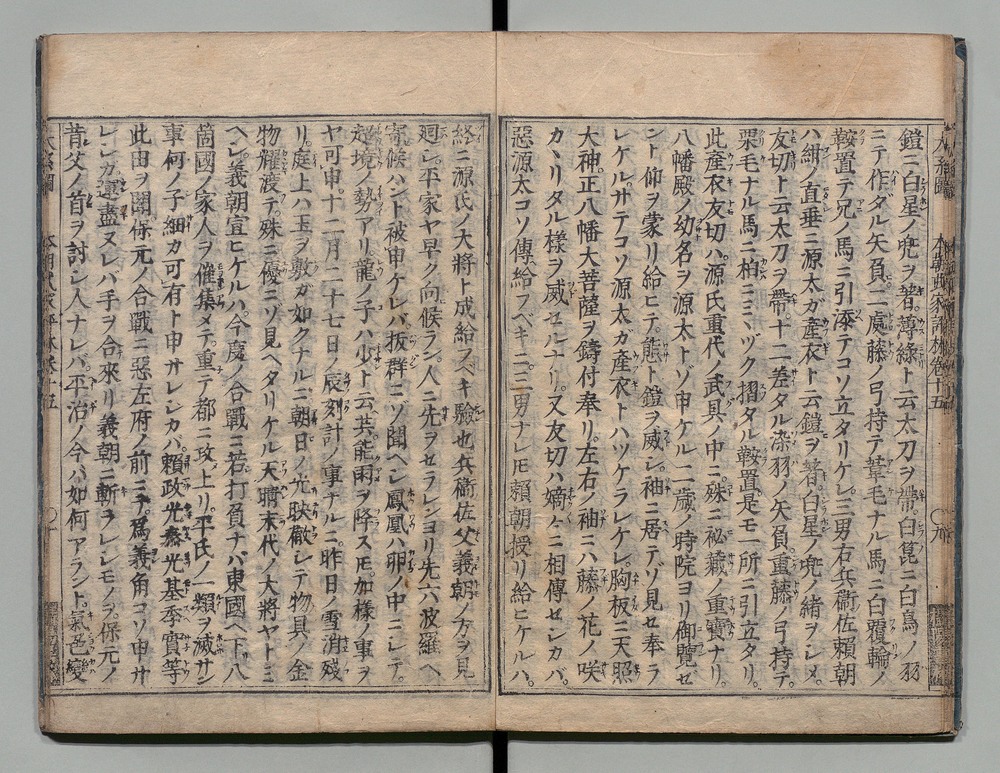 鎧ニ白星ノ兜ヲ著。薄緑ト云太刀ヲ帶。白箆ニ白鳥ノ羽
ニテ作ダル矢負。二處藤ノ弓持テ葦毛ナル馬ニ白覆輪ノ
鞍置テ兄ノ馬ニ引添テコソ立タリケレ。三男右兵衞佐賴朝
ハ紺ノ直垂ニ源太ガ產衣ト云鎧ヲ著。白星ノ兜ノ緒ヲシメ。
友切ト云太刀ヲ帶。十二差タル漆羽ノ矢負。重藤ノ弓持テ。
栗毛ナル馬ニ柏ニミヽヅク摺タル鞍置是モ一所ニ引立タリ。
此產衣友切ハ源氏重代ノ武具ノ中ニ殊ニ祕藏ノ重寶ナリ。
八幡殿ノ幼名ヲ源太トゾ申ケル二歲ノ時院ヨリ御覽ゼ
ント仰ヲ蒙リ給ヒテ。態ト鎧ヲ威シ。袖ニ居テゾ見セ奉ラ
レケル。サテコソ源太ガ產衣トハツケラレケレ。胸板ニ天照
大神。正八幡大菩薩ヲ鑄付奉リ。左右ノ袖ニハ藤ノ花ノ咲
カヽリタル樣ヲ威セルナリ。又友切ハ嫡々ニ相傳セシカバ。
惡源太コソ傳給フベキニ三男ナレ𪜈賴朝授リ給ヒケルハ。
終ニ源氏ノ大將ト成給フベキ驗也兵衞佐父義朝ノ方ヲ見
廻シ。平家ヤ早ク向候ラン。人ニ先ヲセラレンヨリ先六波羅ヘ
寄候ハント被申ケレバ。拔群ニゾ聞ヘシ鳳凰ハ卵ノ中ニシテ。
超境ノ勢アリ龍ノ子ハ少ト云𪜈能雨ヲ降ス𪜈。加樣ノ事ヲ
ヤ可申。十二月二十七日ノ辰刻計ノ事ナルニ昨日ノ雪消殘
リ。庭上ハ玉ヲ敷ガ如クナルニ朝日ノ光映徹シテ物具ノ金
物耀渡テ。殊ニ優ニゾ見ヘタリケル天晴末代ノ大將ヤトミ
ヘシ。義朝宣ヒケルハ。今度ノ合戰ニ若打負ナバ東國ヘ下八
箇國ノ家人ヲ催集メテ。重テ都ニ攻上リ。平氏ノ一類ヲ滅サン
事何ノ子細カ可有ト申サレシカハ。賴政光泰光基季實等
此由ヲ聞保元ノ合戰ニ惡左府ノ前ニテ。爲義角コソ申サ
レシカ運盡ヌレバ手ヲ合來リ義朝ニ斬ラレシモノヲ。保元ノ
昔父ノ首ヲ討シ人ナレバ。平治ノ今ハ如何アラント。氣色變